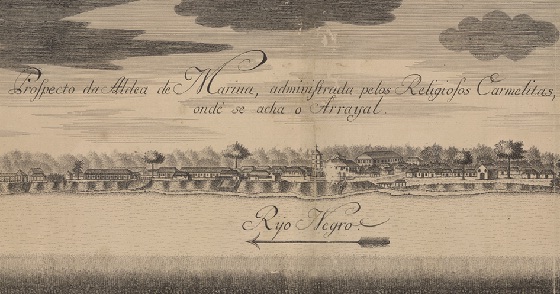 Prospecto da Aldea de Marina, administrada pelos Religiosos Carmelitas,
onde se acha o Arrayal.
Ryo Negro.